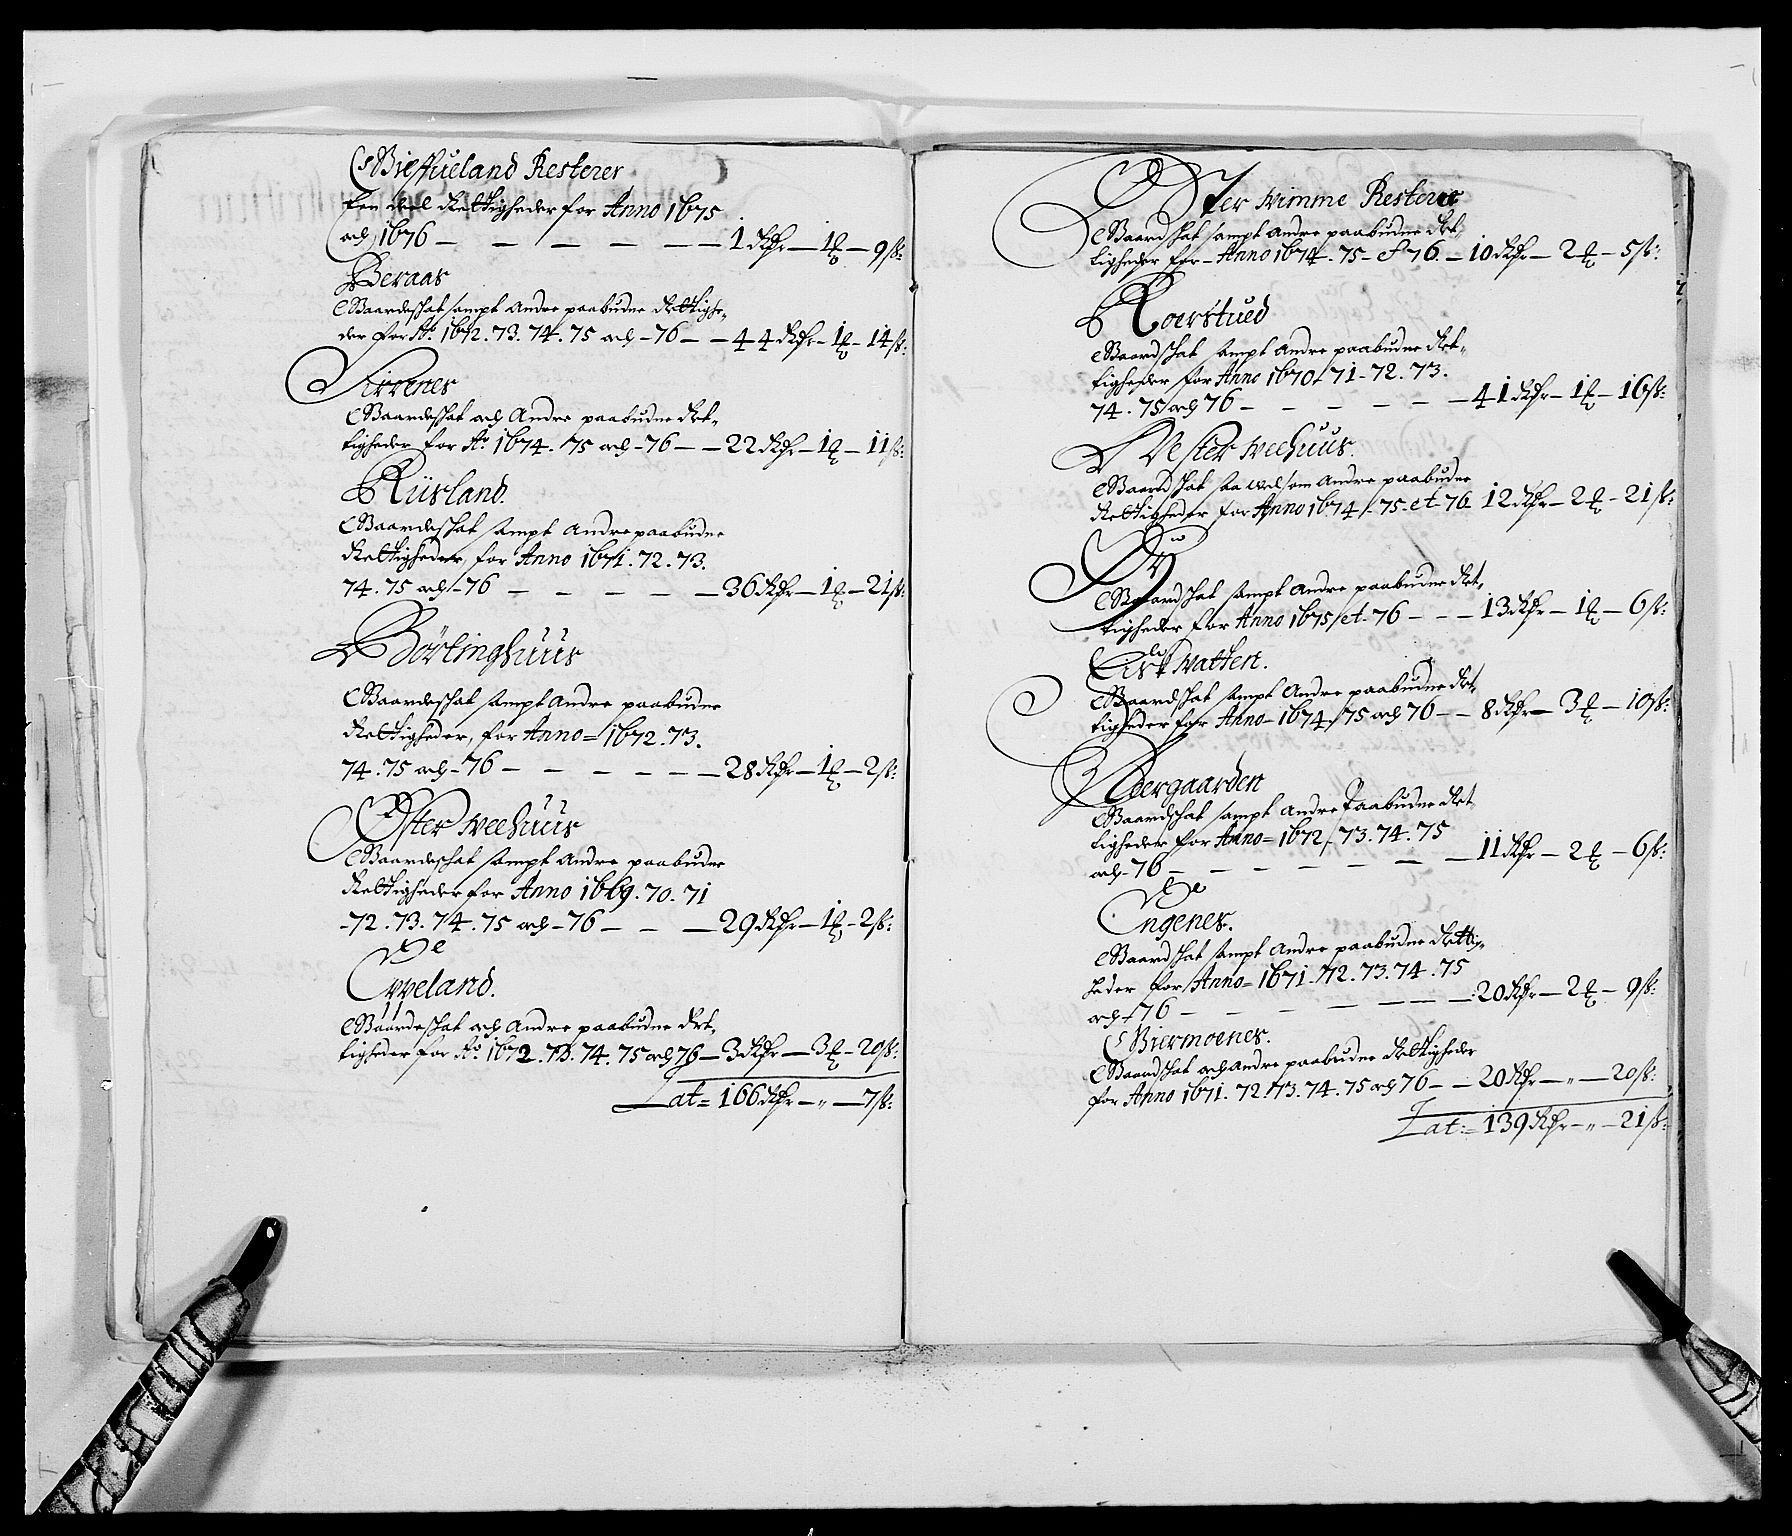 Bieffueland Resterer
Een deel Rettigheder for Anno 1675
och 1676 — — — — — — 1 Rdr — 1 ℔ — 9 ß:
Beraas
Gaardeschat sampt Andre paabudne Rettighe-
der for Ao. 1672. 73. 74. 75 och - 76 — — 44 Rdr - 1 ℔ - 14 ß:
Sirrenes
Gaardeschat och Andre paabudne Ret-
tigheder for Ao. 1674. 75 och - 76 — — 22 Rdr - 1 ℔ - 11 ß:
Riisland.
Gaardeschat sampt Andre paabudne
Rettigheder, for Anno 1671. 72. 73.
74. 75 och - 76 — — — — — 36 Rdr — 1 ℔ — 21 ß:
Börlinghuus
Gaardeschat sampt Andre paabudne
Rettigheder, for Anno = 1672. 73.
74. 75 och - 76 — — — — — — 28 Rdr — 1 ℔ — 2 ß:
Öster weehuus
Gaardeschat sampt Andre paabudne
Rettigheder for Anno 1669. 70. 71
- 72. 73. 74. 75 och - 76 — — — 29 Rdr — 1 ℔ - 2 ß:
Eppeland.
Gaardeschat och Andre paabudne Ret-
tigheder for Ao. 1672. 73. 74. 75 och 76 — 3 Rdr — 3 ℔ - 20 ß:
Lat = 166 Rdr — „ — 7 ß:
Öster wimme Resterer
Gaardschat sampt Andre paabudne Ret-
tigheder for - Anno 1674. 75 - & 76 — 10 Rdr — 2 ℔ — 5 ß:
Roerstued
Gaardschat sampt Andre paabudne Ret-
tigheder for Anno 1670. 71 - 72. 73.
74. 75 och 76 — — — — — — 41 Rdr — 1 ℔ — 16 ß:
Vester weehuus.
Gaardschat saa velsom Andre paabudne
Rettigheder for Anno 1674. 75 - et - 76 - 12 Rdr — 2 ℔ - 21 ß:
Gaardschat sampt Andre paabudne Ret-
tigheder for Anno 1675 et - 76 — — — 13 Rdr — 1 ℔ — 6 ß:
watten.
Gaardschat sampt Andre paabudne Ret-
tigheder for Anno - 1674. 75 och 76 — — 8 Rdr — 3 ℔ — 10 ß:
Gaardschat sampt Andre Paabudne Ret
tigheder for Anno = 1672. 73. 74. 75
och - 76 — — — — — — 11 Rdr — 2 ℔ — 6 ß:
Engenes.
Gaardschat sampt Andre paabudne Rettig-
heder for Anno = 1671. 72. 73. 74. 75
och - 76 — — — — — — 20 Rdr — 2 ℔ — 9 ß:
Biermoenes.
Gaardschat och Andre paabudne Rettigheder
for Anno 1671. 72. 73. 74. 75 och 76 — — 20 Rdr — „ — 20 ß:
Lat: = 139 Rdr — „ — 21 ß: